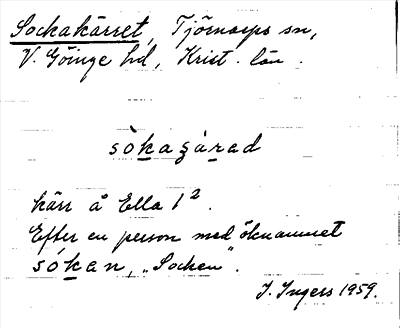 Sockakärret, Tjörnarps sn,
V. Göinge hd, Krist. län.
sòkaʒárad
kärr å Ella 1².
Efter en person med öknamnet
sókan, „Socken”.
I. Ingers 1959.